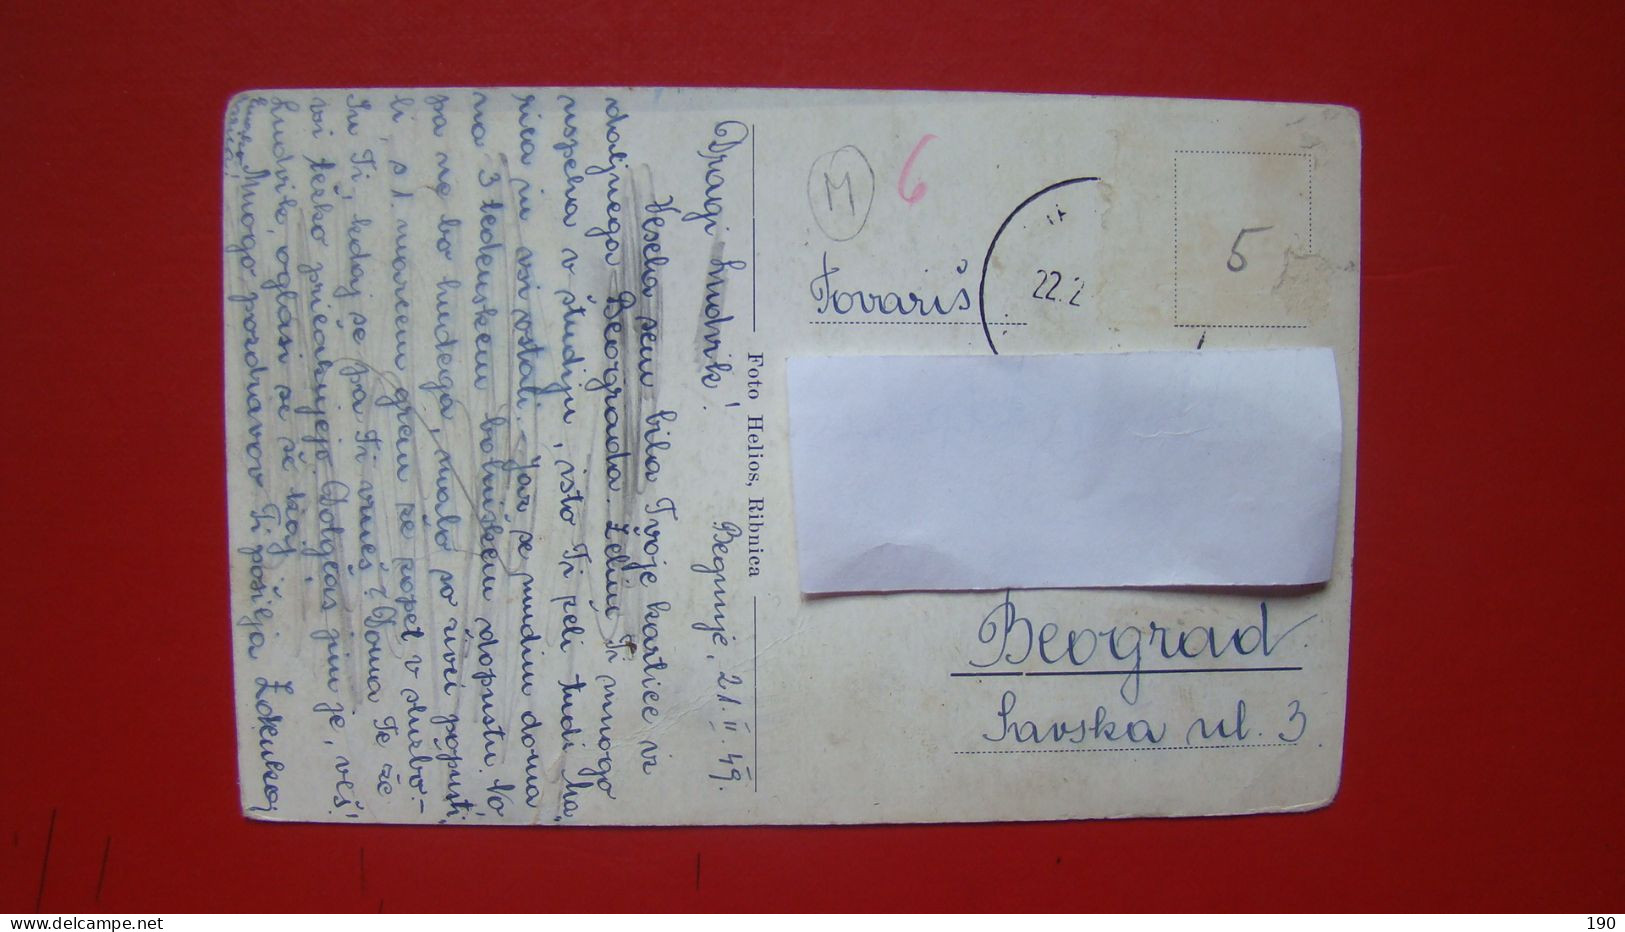 Begunje, 21. II. 49.
Dragi Ludvik!
Vesela sem bila Tvoje kartice iz
daljnega Beograda. Želim Ti mnogo
uspeha v študiju, isto Ti želi tudi Ma-
rica in vsi ostali. Jaz se mudim doma
na 3 tedenskem bolniškem dopustu. No
pa ne bo hudega, malo so živci popusti-
li, s 1. marcem grem že zopet v službo.-
In Ti, kdaj se pa Ti vrneš? Doma Te že
vsi težko pričakujejo. Dolgčas jim je, veš!
Ludvik, oglasi se še kaj!
Mnogo pozdravov Ti pošilja
Foto Helios, Ribnica
M
6
5
22.2
Tovariš
Beograd
Savska ul. 3
190